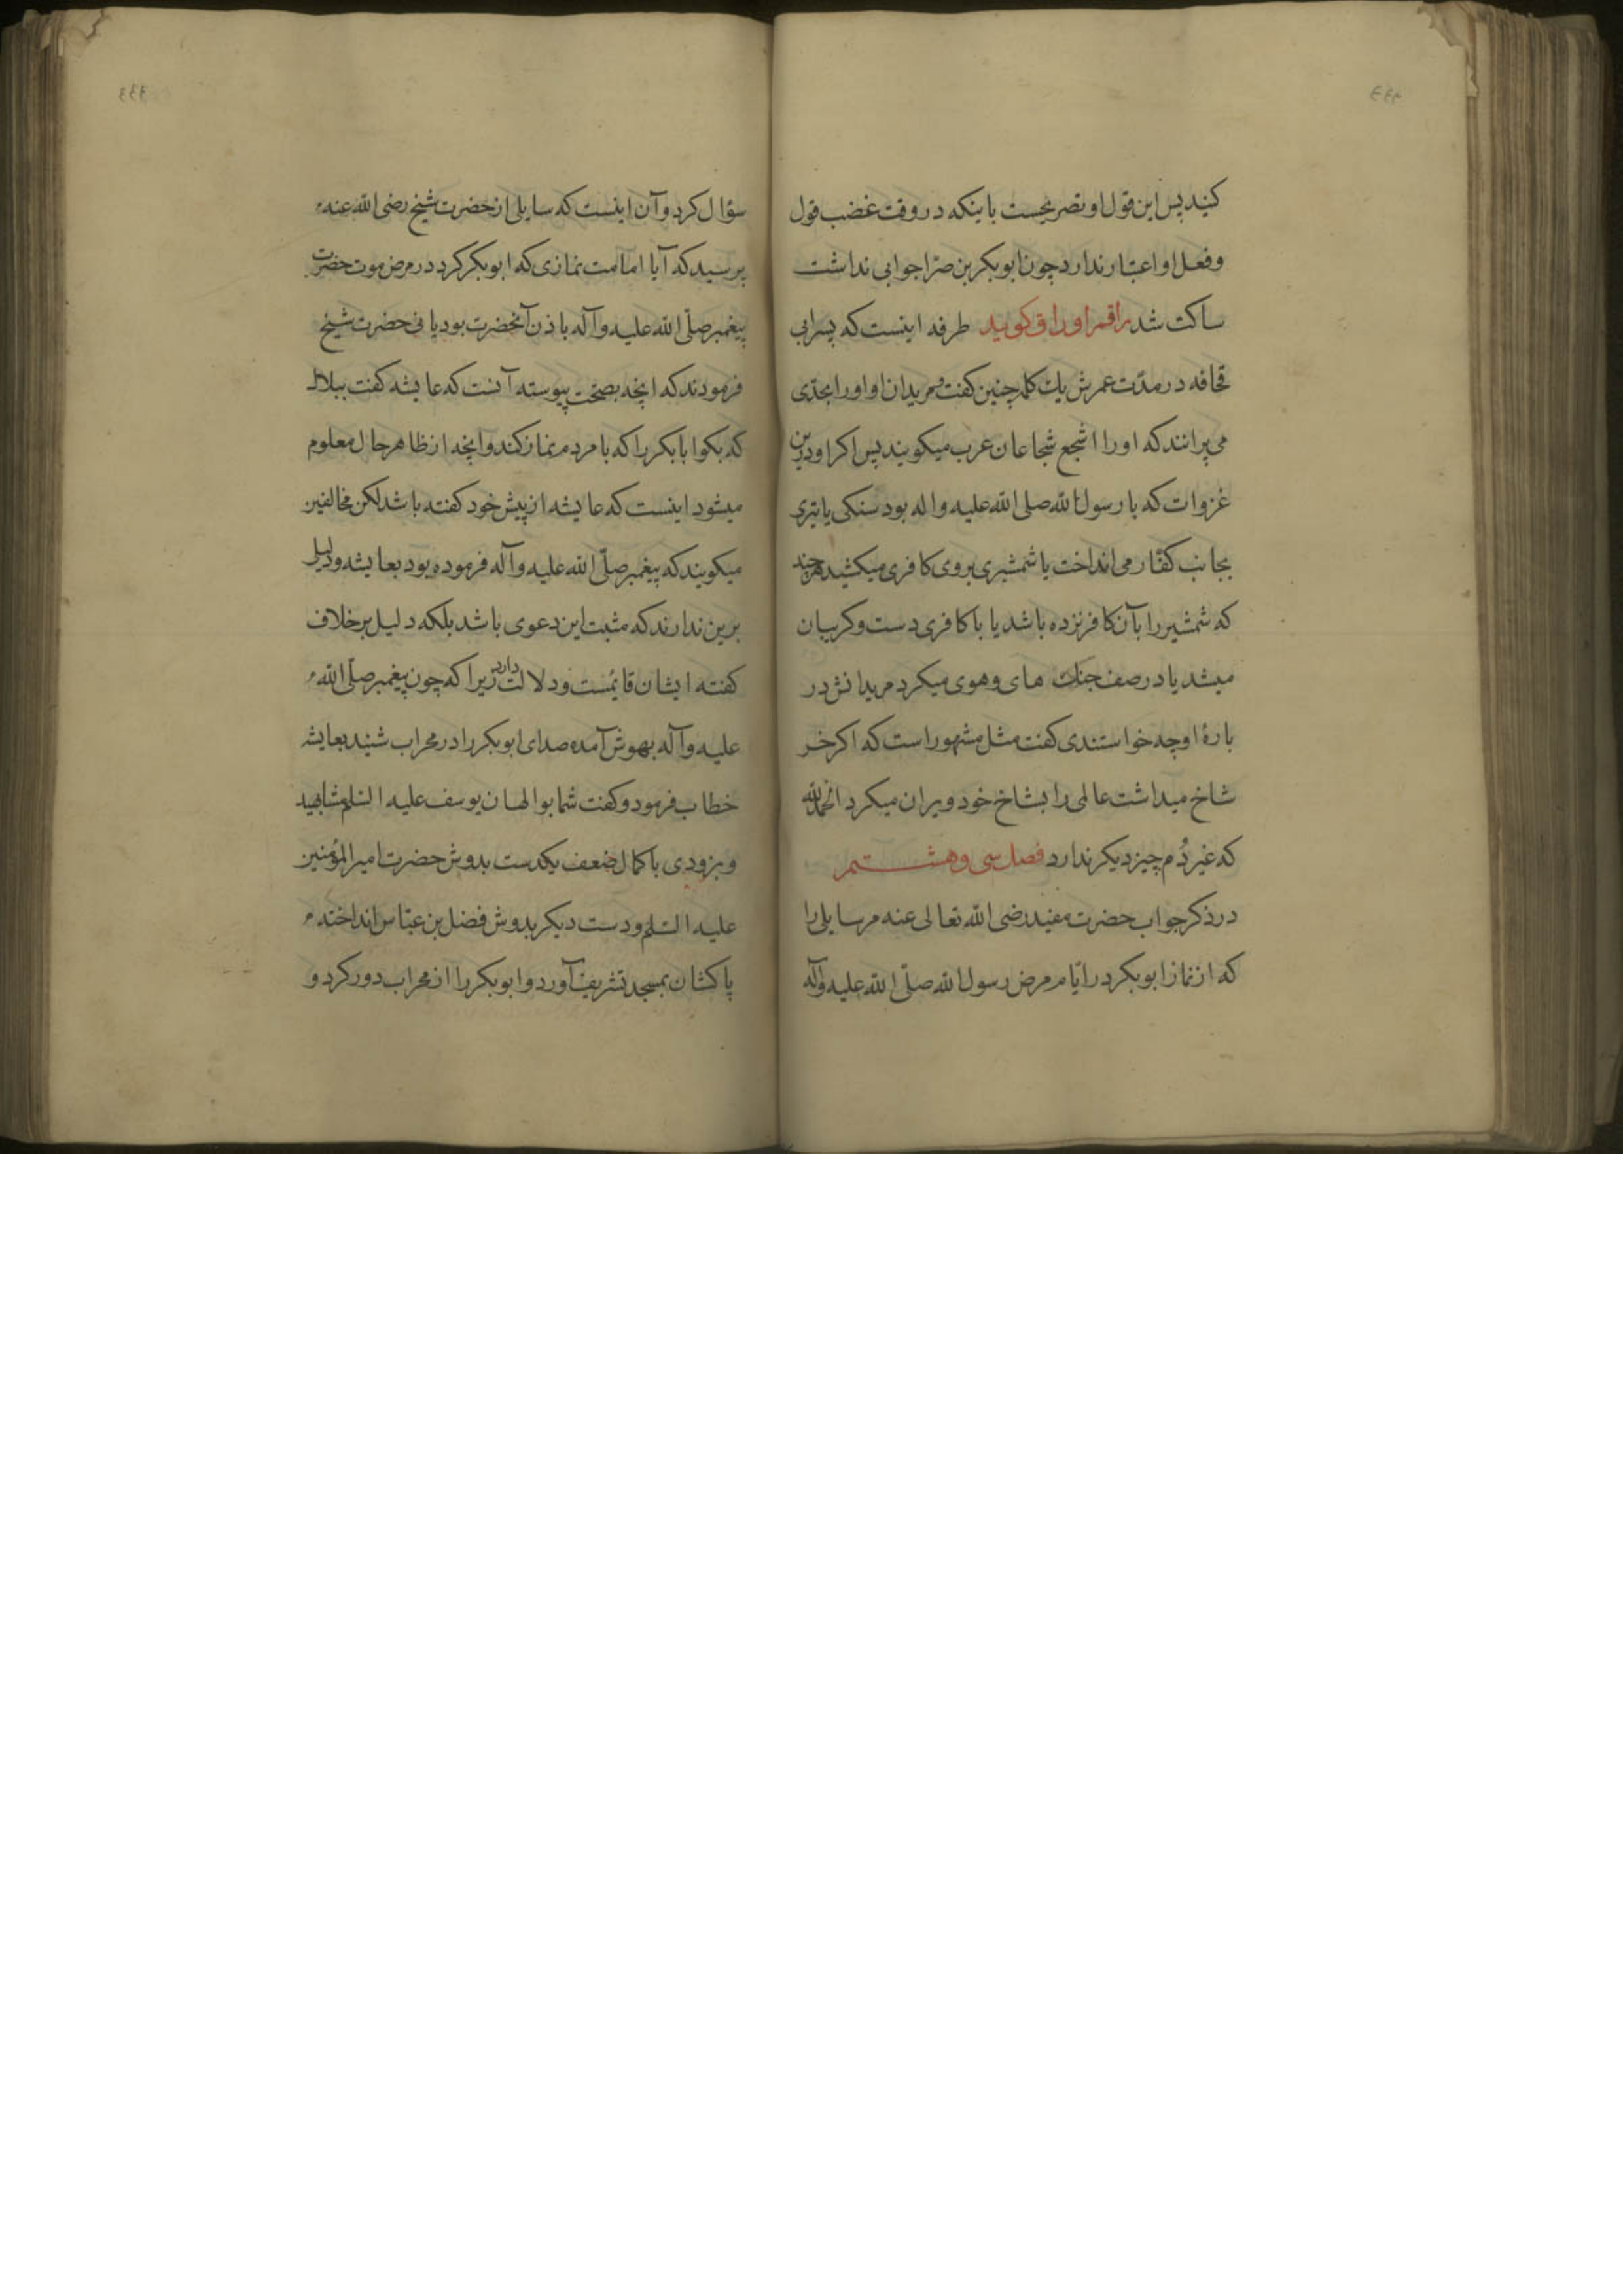 کنید پس این قول او تصریحیست باینکه در وقت غضب قول
و فعل او اعتبار ندارد چون ابوبکر بن صرّا جوابی نداشت
ساکت شد راقم اوراق کوید طرفه اینست که پسر ابی
قحافه در مدّت عمرش یک کلمه چنین کفت و مریدان او او را بحدّی
می پرانند که او را اشجع شجاعان عرب میکویند پس اکر او درین
غزوات که با رسول الله صلی الله علیه واله بود سنکی یا تیری
بجانب کفّار می انداخت یا شمشیری بروی کافری میکشید هر چند
که شمشیر را بآن کافر نزده باشد یا با کافری دست و کریبان
میشد یا در صف جنک های و هوی میکرد مریدانش در
بارهٔ او چه خواستندی کفت مثل مشهور است که اکر خر
شاخ میداشت عالمی را بشاخ خود ویران میکرد الحمدلله
که غیر دُم چیز دیکر ندارد فصل سی و هشتم
در ذکر جواب حضرت مفید رضی الله تعالی عنه مر سایلی را
که از نماز ابوبکر در ایّام مرض رسول الله صلّی الله علیه وآله
سؤال کرد و آن اینست که سایلی از حضرت شیخ رضی الله عنه
پرسید که آیا امامت نمازی که ابوبکر کرد در مرض موت حضرت
پیغمبر صلّی الله علیه وآله باذن آنحضرت بود یا نی حضرت شیخ
فرمودند که انچه بصحّت پیوسته آنست که عایشه کفت ببلال
که بکو ابابکر را که با مردم نماز کند و انچه از ظاهر حال معلوم
میشود اینست که عایشه از پیش خود کفته باشد لکن مخالفین
میکویند که پیغمبر صلّی الله علیه وآله فرموده بود بعایشه و دلیل
برین ندارند که مثبت این دعوی باشد بلکه دلیل بر خلاف
کفته ایشان قایمست و دلالت دارد زیرا که چون پیغمبر صلّی الله
علیه وآله بهوش آمده صدای ابوبکر را در محراب شنید بعایشه
خطاب فرمود و کفت شما بوالهان یوسف علیه السّلم مشابهید
و بزودی با کمال ضعف یکدست بدوش حضرت امیر المؤمنین
علیه السّلم و دست دیکر بدوش فضل بن عبّاس انداخته
پا کشان بمسجد تشریف آورد و ابوبکر را از محراب دور کرد و